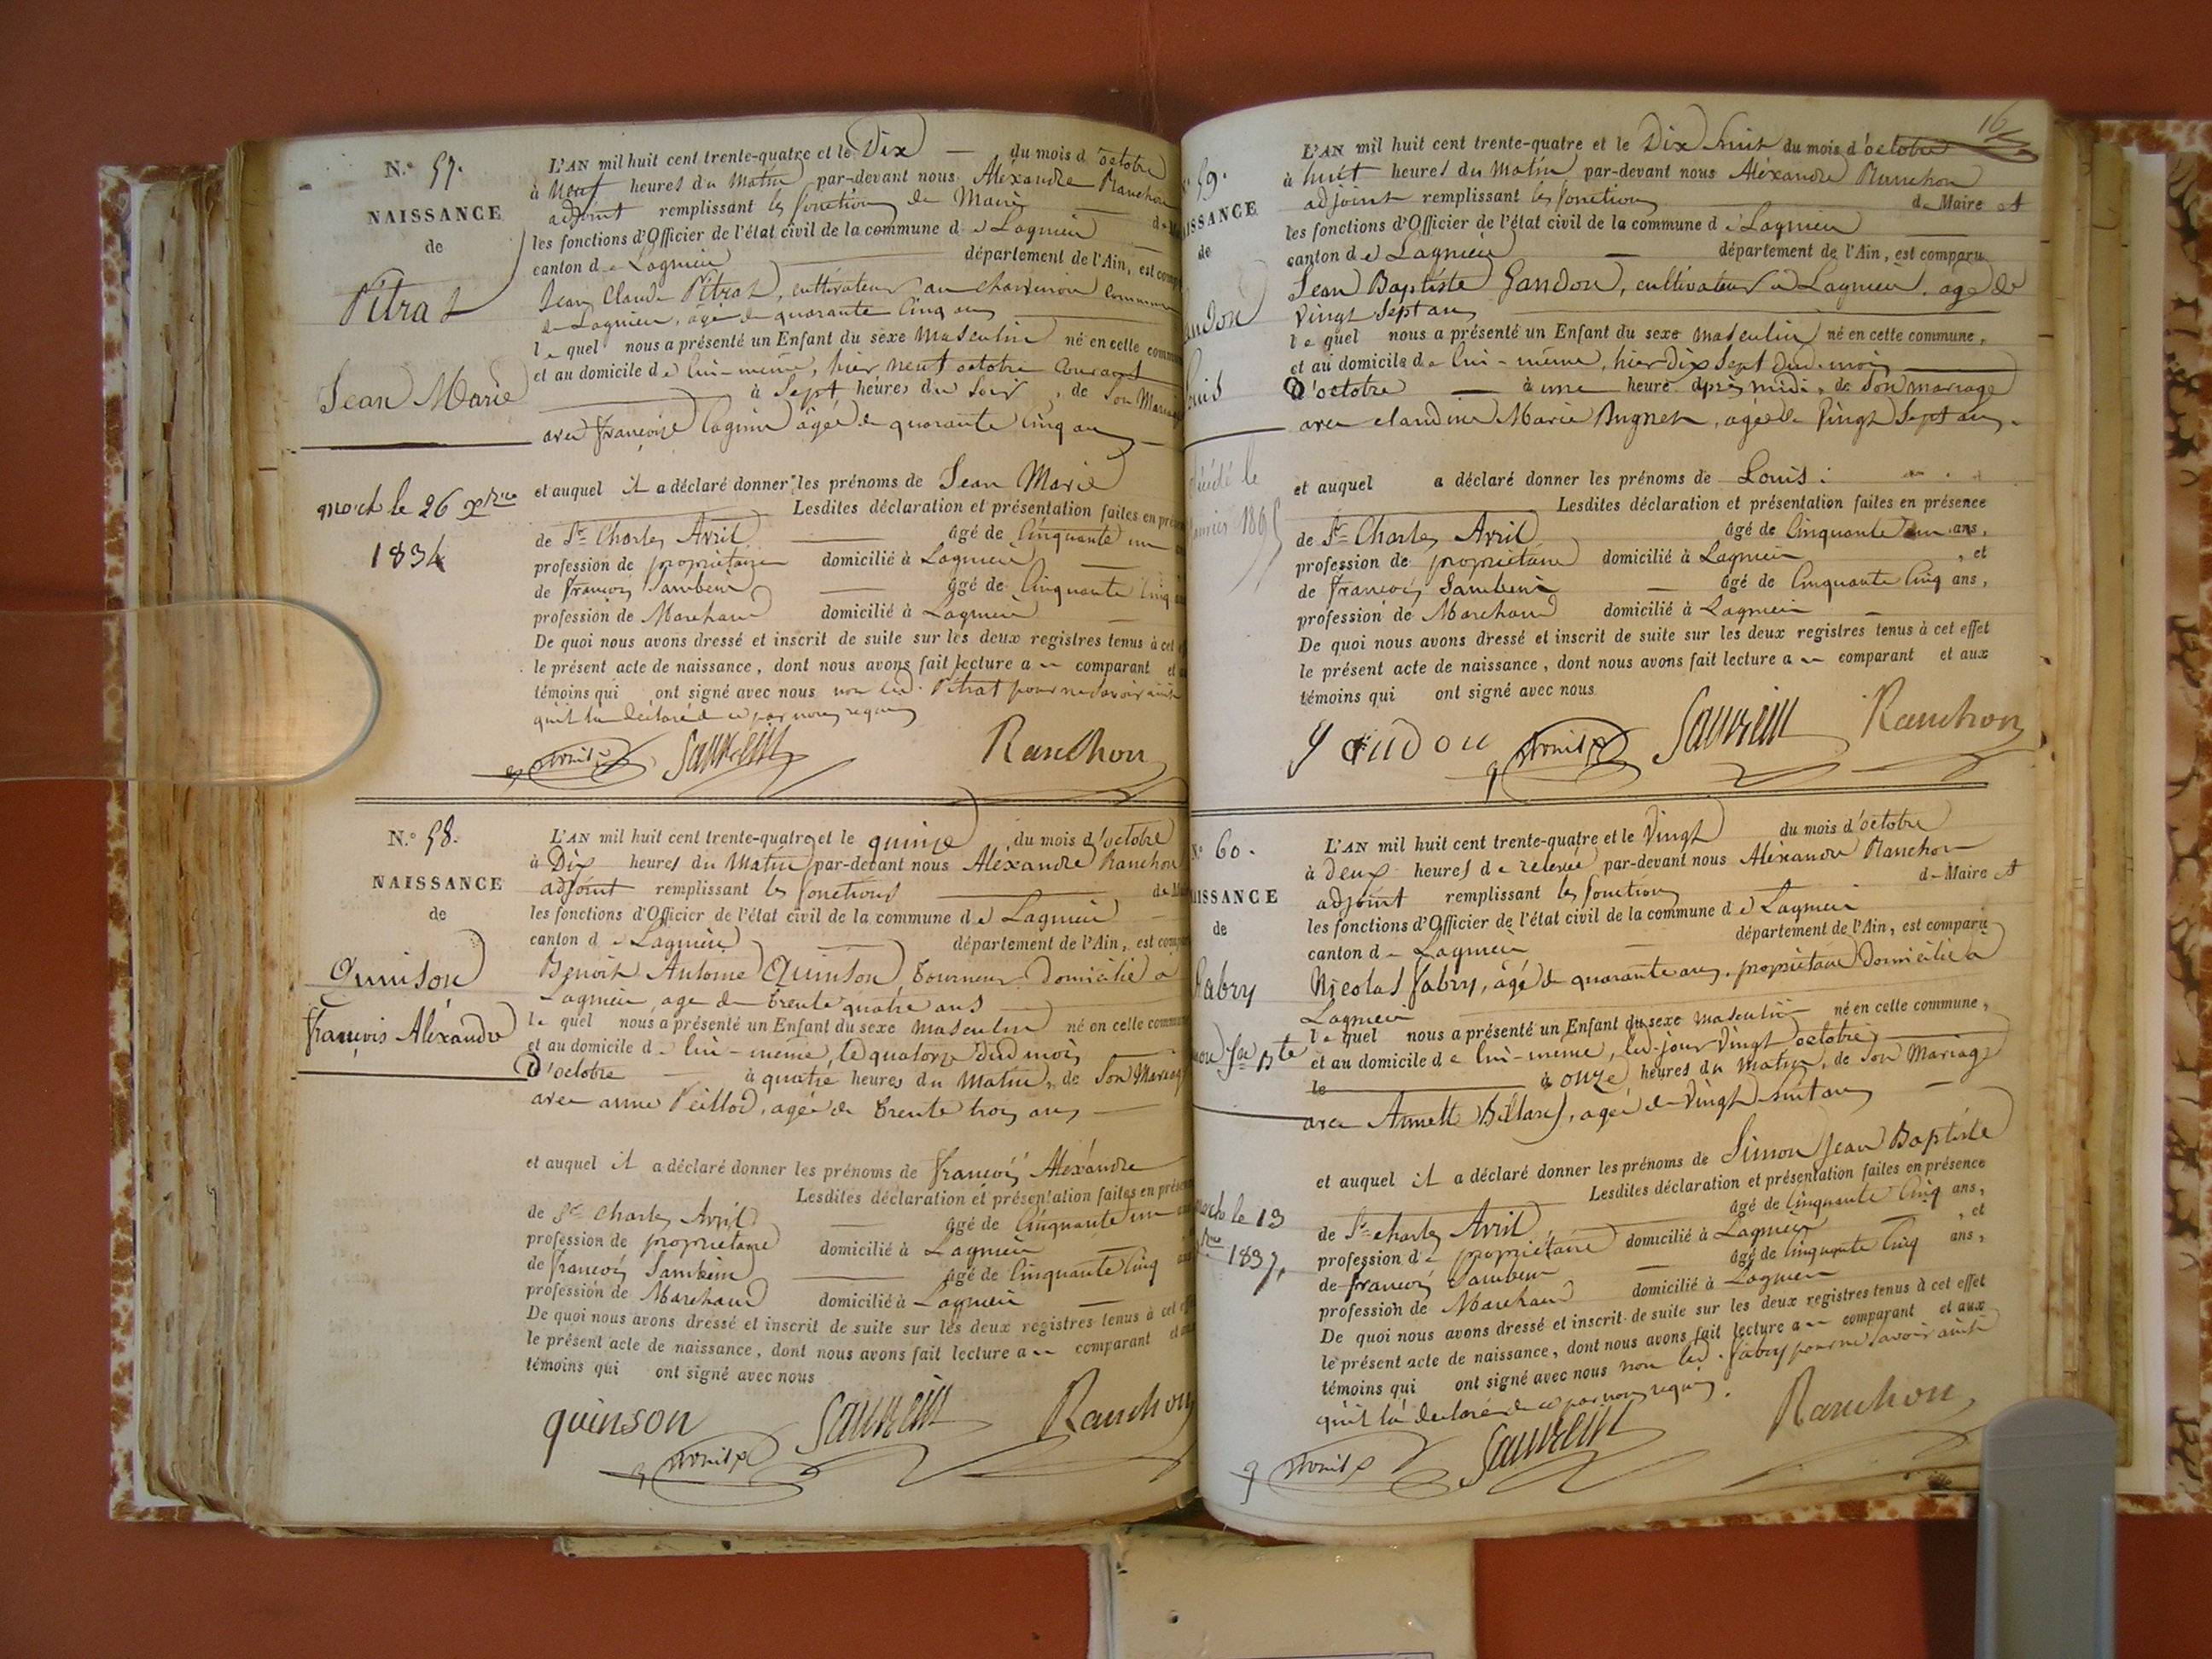 N.° 57.
NAISSANCE
de
Pitrat
Jean Marie
mort le 26 xbre
1834
L'AN mil huit cent trente-quatre et le Dix du mois d'octobre
à Neuf heures du Matin par-devant nous Aléxandre Ranchon
adjoint remplissant les fonctions de Maire
les fonctions d'Officier de l'état civil de la commune de Lagnieu
canton de Lagnieu département de l'Ain, est
Jean Claude Pitrat, cultivateur au
de Lagnieu, agé de quarante Cinq ans
le quel nous a présenté un Enfant du sexe masculin né en cette
et au domicile de lui-même, hier neuf octobre Courant
à Sept heures du Soir, de Son
avec françoise agée de quarante Cinq ans
et auquel il a déclaré donner les prénoms de Jean Marie
Lesdites déclaration et présentation faites en
de Sr. Charles Avril agé de Cinquante un
profession de propriétaire domicilié à Lagnieu
de françois agé de Cinquante Cinq
profession de Marchand domicilié à Lagnieu
De quoi nous avons dressé et inscrit de suite sur les deux registres tenus à cet
le présent acte de naissance, dont nous avons fait lecture au comparant et
témoins qui ont signé avec nous non led. Pitrat pour ne savoir ainsi
qu'il l'a déclaré de ce par nous requis
Ranchon
N.° 58.
NAISSANCE
de
Quinson
françois Aléxandre
L'AN mil huit cent trente-quatre et le quinze du mois d'octobre
à Dix heures du Matin par-devant nous Aléxandre Ranchon
adjoint remplissant les fonctions
les fonctions d'Officier de l'état civil de la commune de Lagnieu
canton de Lagnieu département de l'Ain, est
Benoit Antoine Quinson, tourneur domicilié à
Lagnieu, age de trente quatre ans
le quel nous a présenté un Enfant du sexe masculin né en cette
et au domicile de lui-même, le quatorze dud. mois
D'octobre à quatre heures du Matin, de Son
avec anne Peillod, agée de trente trois ans
et auquel il a déclaré donner les prénoms de françois Aléxandre
Lesdites déclaration et présentation faites en
de Sr. Charles Avril agé de Cinquante un
profession de propriétaire domicilié à Lagnieu
de françois agé de Cinquante Cinq
profession de Marchand domicilié à Lagnieu
De quoi nous avons dressé et inscrit de suite sur les deux registres tenus à cet
le présent acte de naissance, dont nous avons fait lecture au comparant
témoins qui ont signé avec nous
quinson Ranchon
16
59.
de
L'AN mil huit cent trente-quatre et le Dix huit du mois d'octobre
à huit heures du Matin par-devant nous Aléxandre Ranchon
adjoint remplissant les fonctions de Maire et
les fonctions d'Officier de l'état civil de la commune de Lagnieu
canton de Lagnieu département de l'Ain, est comparu
Jean Baptiste Gandon, cultivateur à Lagnieu, agé de
Vingt Sept ans
le quel nous a présenté un Enfant du sexe masculin né en cette commune,
et au domicile de lui-même, hier dix Sept dud. mois
D'octobre à une heure après midi, de Son mariage
avec claudine Marie agée de Vingt Sept ans.
et auquel a déclaré donner les prénoms de Louis.
Lesdites déclaration et présentation faites en présence
de Sr. Charles Avril agé de Cinquante un ans,
profession de propriétaire domicilié à Lagnieu, et
de françois agé de Cinquante Cinq ans,
profession de Marchand domicilié à Lagnieu
De quoi nous avons dressé et inscrit de suite sur les deux registres tenus à cet effet
le présent acte de naissance, dont nous avons fait lecture au comparant et aux
témoins qui ont signé avec nous
Ranchon
60.
de
L'AN mil huit cent trente-quatre et le Vingt du mois d'octobre
à deux heures de relevée par-devant nous Aléxandre Ranchon
adjoint remplissant les fonctions de Maire et
les fonctions d'Officier de l'état civil de la commune de Lagnieu
canton de Lagnieu département de l'Ain, est comparu
Nicolas fabry, agé de quarante ans, propriétaire domicilié à
Lagnieu
le quel nous a présenté un Enfant du sexe masculin né en cette commune,
et au domicile de lui-même, led. jour Vingt octobre,
le à onze heures du Matin, de Son Mariage
avec agée de Vingt huit ans
et auquel il a déclaré donner les prénoms de Simon Jean Baptiste
Lesdites déclaration et présentation faites en présence
de Sr. Charles Avril agé de Cinquante Cinq ans,
profession de propriétaire domicilié à Lagnieu, et
de françois agé de Cinquante Cinq ans,
profession de Marchand domicilié à Lagnieu
De quoi nous avons dressé et inscrit de suite sur les deux registres tenus à cet effet
le présent acte de naissance, dont nous avons fait lecture au comparant et aux
témoins qui ont signé avec nous non led. fabry pour ne savoir ainsi
qu'il l'a déclaré de ce par nous requis.
Ranchon
le 13
1837